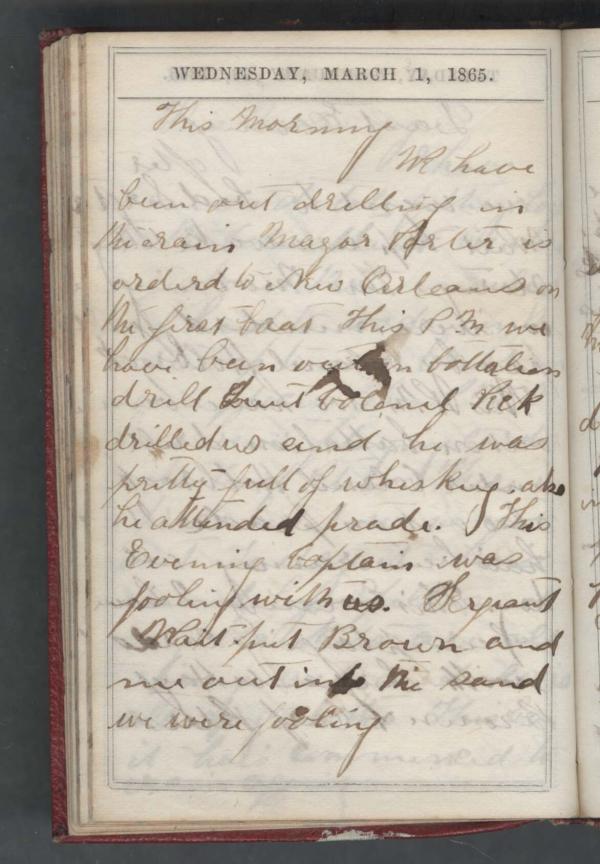 WEDNESDAY, MARCH 1, 1865.
This Morning
We have
been out drilling in
the rain Magor Porter is
orderd to New Orleans on
the first boat This P M we
have been out on battalien
drill Luut Colonel Peck
drilled us and he was
pretty full of whiskey. also
he attended prade. This
Evening captain was
fooling with us. Sergeant
Wait put Brown and
me out into the sand
we were fooling